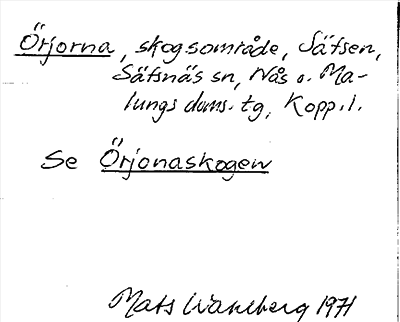 Örjorna, skogsområde, Säfsen,
Säfsnäs sn, Nås o. Ma-
lungs doms. tg, Kopp. l.
Se Örjonaskogen
Mats Wahlberg 1971